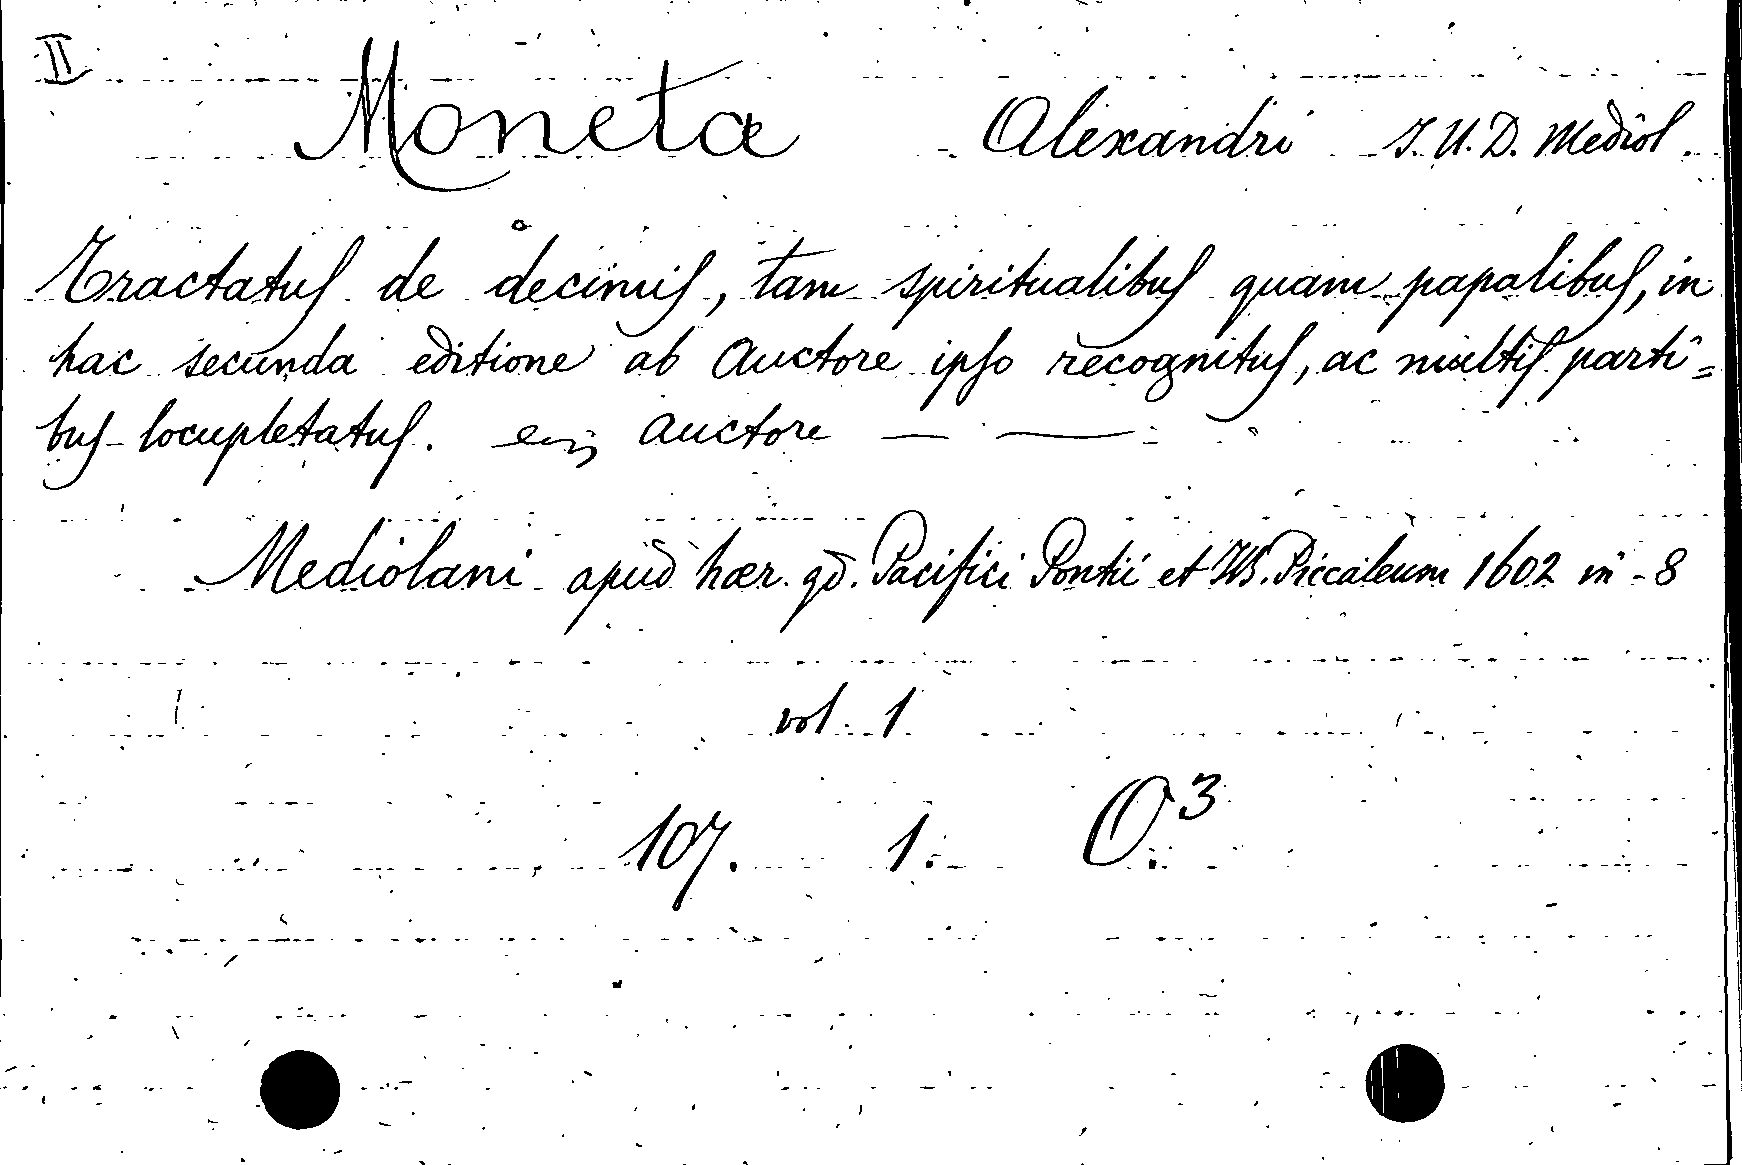 II
Moneta Alexandri J. U. D. Mediol.
Tractatus de decimis, tam spiritualibus quam papalibus, in
hac secunda editione ab Auctore ipso recognitus, ac multis parti=
bus locupletatus. Auctore — —
Mediolani apud hær. qd. Pacifici Pontii et Piccaleum 1602 in-8
vol. 1
107. 1. O3